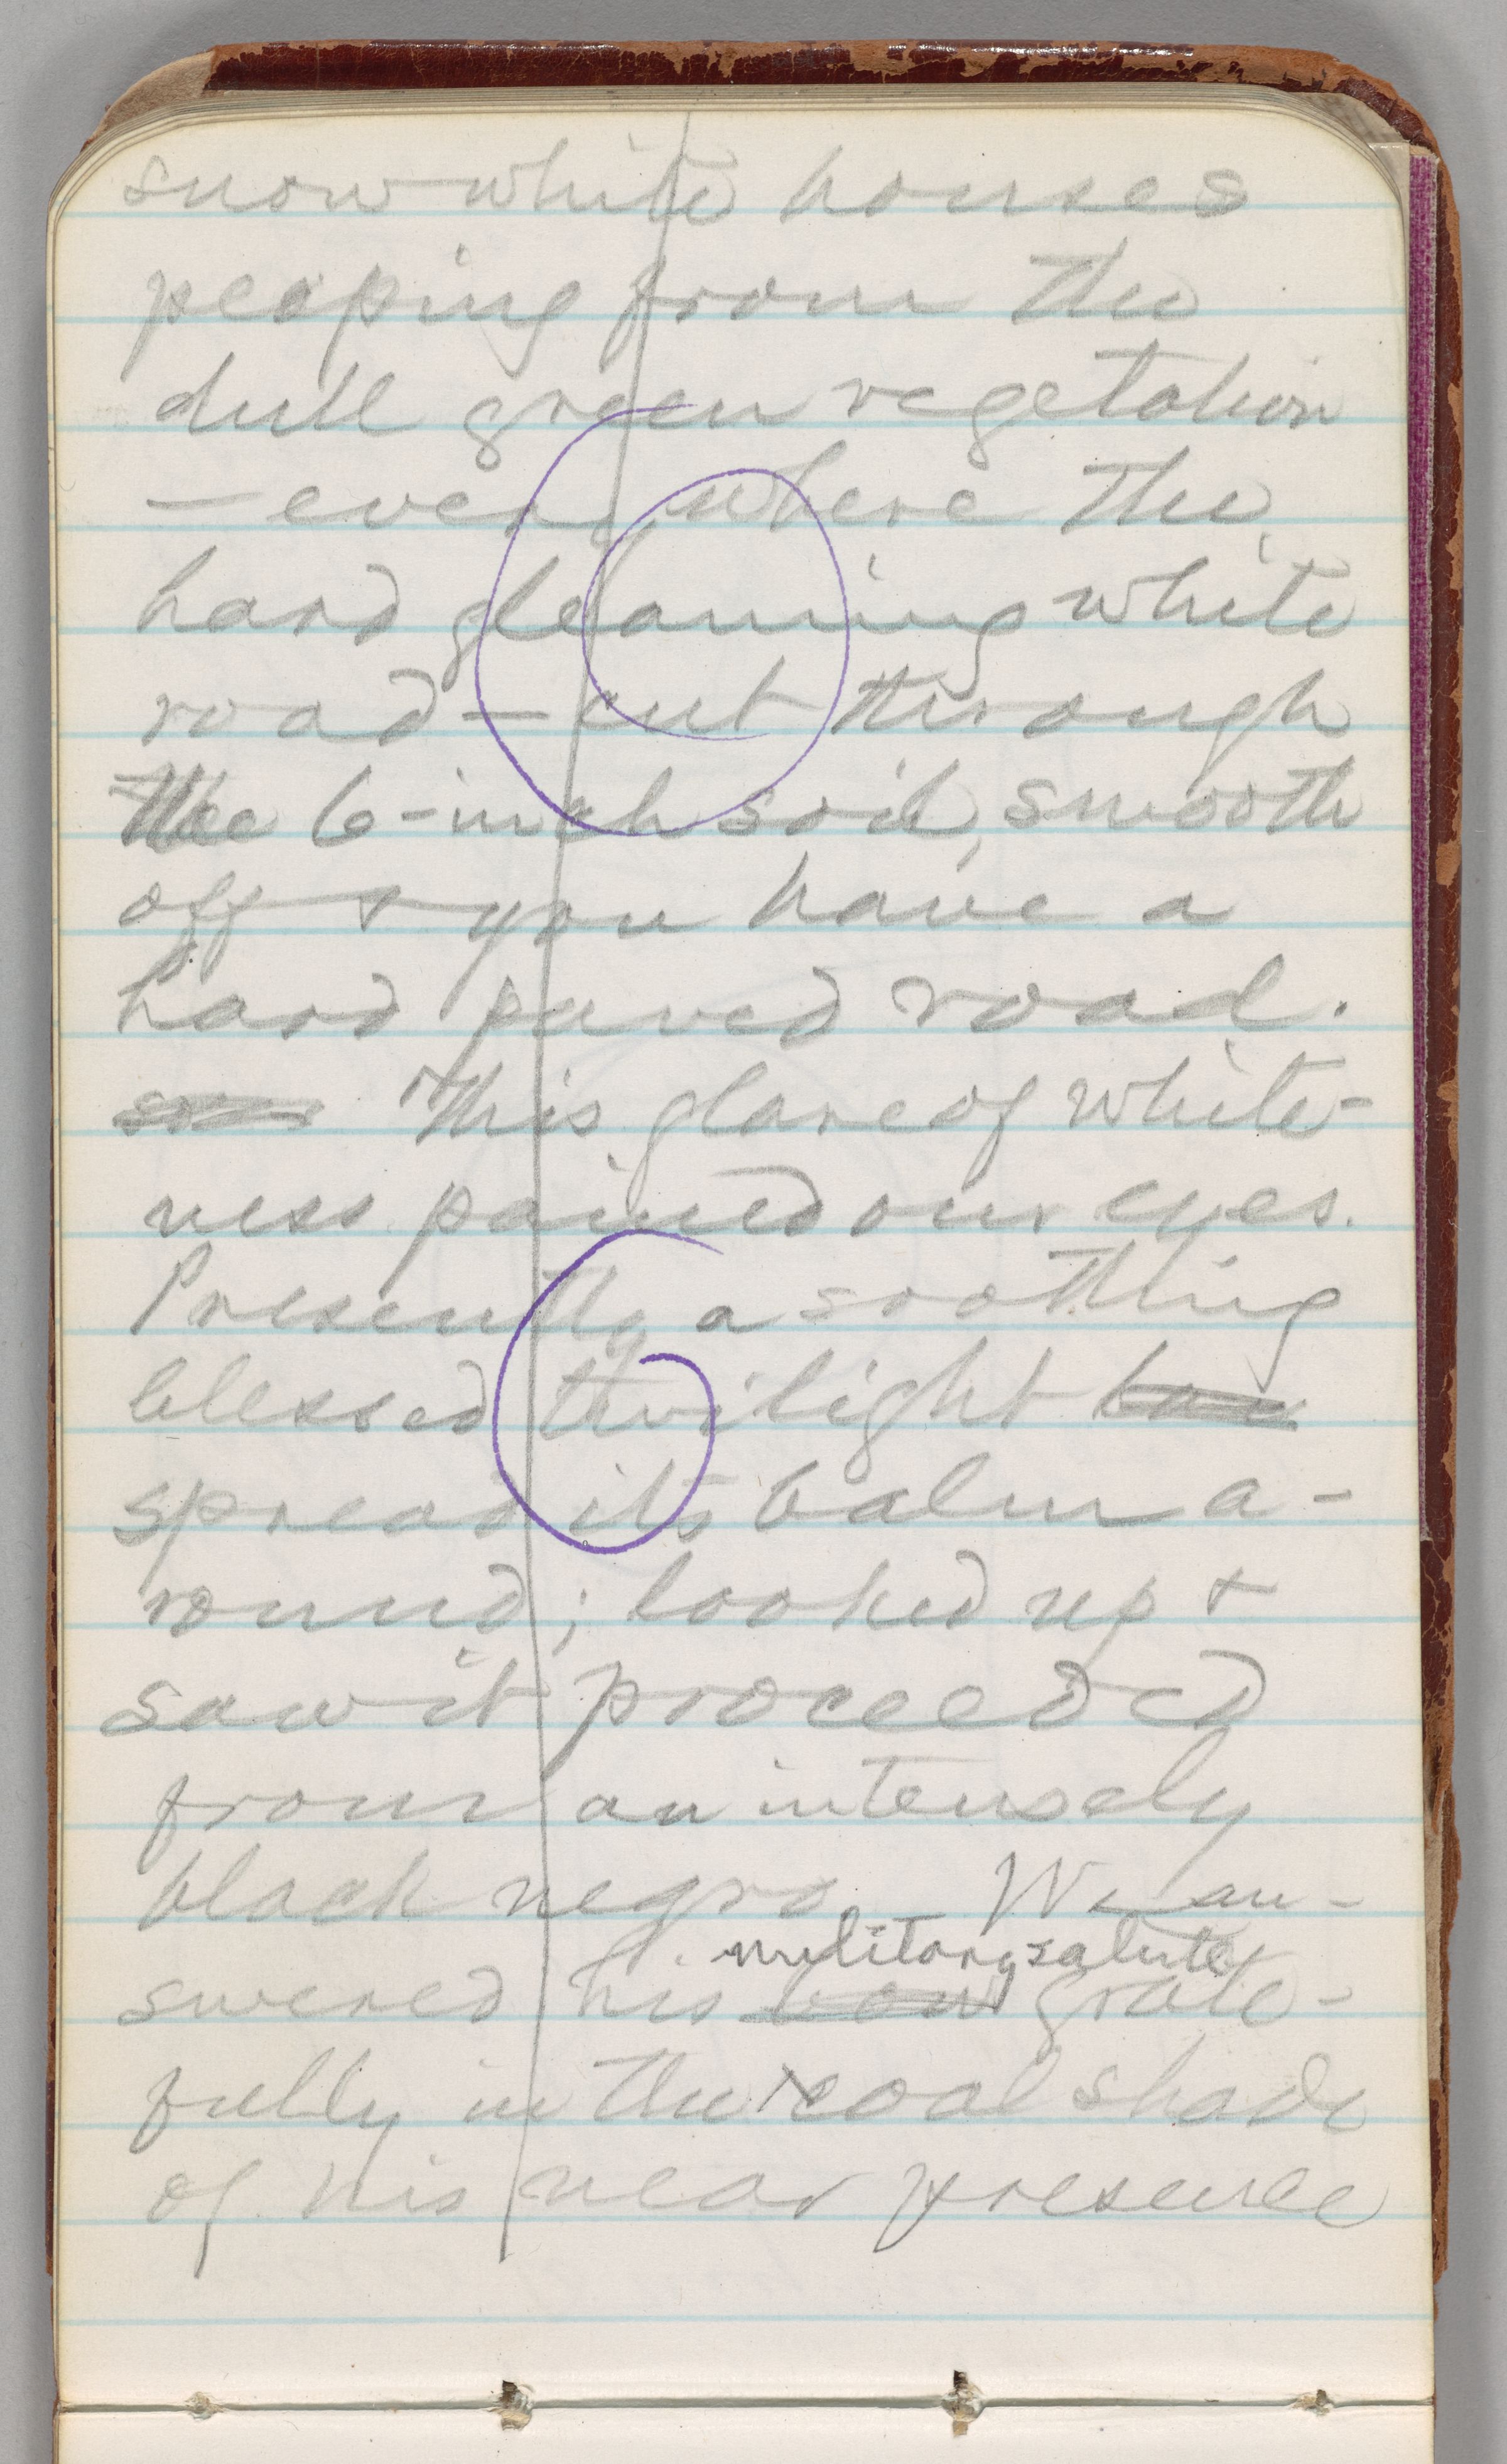 snow white houses
peeping from the
dull green vegetation
— even where the
hard gleaming white
road — cut through
the 6-inch soil, smooth
off & you have a
hard paved road.
This glare of white-
ness pained our eyes.
Presently a soothing
blessed twilight
spread its balm a-
round; looked up &
saw it proceeded
from an intensely
black negro We an-
military salute
swered his bow grate-
fully in the coal shade
of his near presence